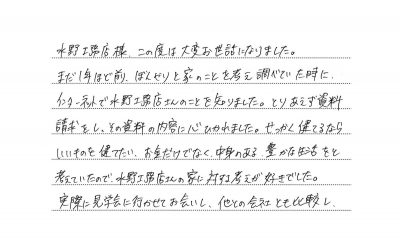 水野工務店様、この度は大変お世話になりました。
まだ1年ほど前、ぼんやりと家のことを考え調べていた時に、
インターネットで水野工務店さんのことを知りました。とりあえず資料
請求をし、その資料の内容に心ひかれました。せっかく建てるなら
いいものを建てたい、お金だけでなく、中身のある、豊かな生活をと
考えていたので、水野工務店さんの家に対する考えが好きでした。
実際に見学会に行かせてお会いし、他との会社とも比較し、